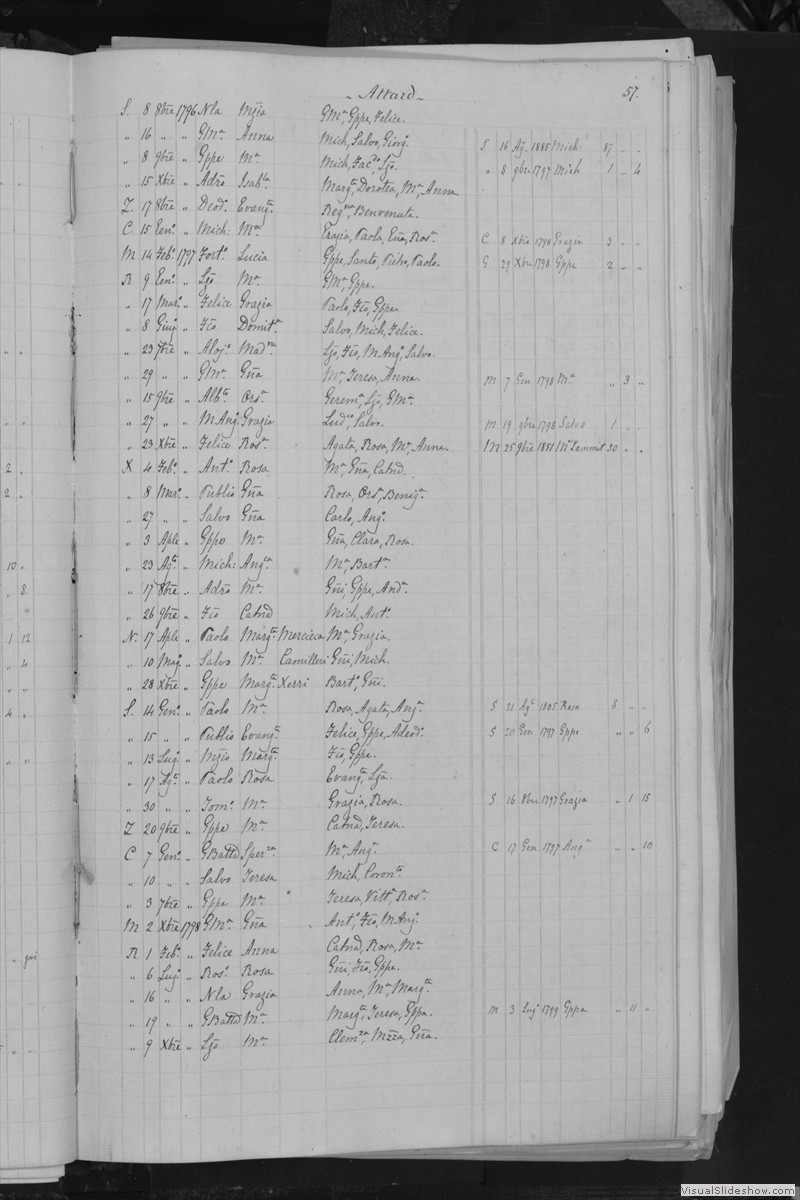 Attard 57.
S. 8 8bre 1796 Nla Mzia GMa, Gppe, Felice.
„ 16 „ „ GMa Anna Mich, Salvo, Giorgo. S 16 Ago 1885 Mich: 87 „ „
„ 8 9bre „ Gppe Ma Mich, Faco, Ljo. „ 8 9bre 1797 Mich 1 „ 4
„ 15 Xbre „ Adro Isabla Margta, Dorotea, Ma, Anna.
Z. 17 8bre „ Deodo Evangta Regna, Benvenuta.
C 15 Geno „ Mich: Ma Grazia, Paola, Gna, Rosa. C 8 Xbre 1798 Grazia 3 „ „
M 14 Febo 1797 Forto Lucia Gppe, Santo, Pietro, Paolo. G 29 Xbre 1798 Gppe 2 „ „
R 9 Geno „ Ljo Ma GMa, Gppe.
„ 17 Maro „ Felice Grazia Paolo, Fco, Gppe.
„ 8 Giugo „ Fco Domita Salvo, Mich, Felice.
„ 23 7bre „ Alojo Madna Ljo, Fco, M Ango, Salvo.
„ 29 „ „ GMa Gna Ma, Teresa, Anna. M 7 Gen 1798 Ma „ 3 „
„ 15 9bre „ Albto Orsa Gerema, Ljo, GMa.
„ 27 „ „ M Ango Grazia Ludco, Salvo. M 19 9bre 1798 Salvo 1 „ „
„ 23 Xbre „ Felice Rosa Agata, Rosa, Ma, Anna. M 25 9bre 1851 Ma Zammit 30 „ „
X 4 Febo „ Anto Rosa Ma, Gna, Catnd.
„ 8 Maro „ Publio Gna Rosa, Orsa, Beniga.
„ 27 „ „ Salvo Gna Carlo, Ango.
„ 3 Aple „ Gppe Ma Gna, Clara, Rosa.
„ 23 Agto „ Mich: Angca Ma, Barta.
„ 17 8bre „ Adro Ma Gni, Gppe, Anda.
„ 26 9bre „ Fco Catnd Mich, Anto.
N. 17 Aple „ Paolo Margta Mercieca Ma, Grazia.
„ 10 Mago „ Salvo Ma Camilleri Gni, Mich.
„ 28 Xbre „ Gppe Margta Xerri Barto, Gni.
S. 14 Geno „ Paolo Ma Rosa, Agata, Anga. S 21 Ago 1805 Rosa 8 „ „
„ 15 „ „ Publio Evangta Felice, Gppe, Adeodo. S 20 Gen 1797 Gppe „ „ 6
„ 13 Lugo „ Mzio Margta Fco, Gppe.
„ 17 Agto „ Paolo Rosa Evangta, Lja.
„ 30 „ „ Tomo Ma Grazia, Rosa. S 16 8bre 1797 Grazia „ 1 15
Z 20 9bre „ Gppe Ma Catnd, Teresa.
C 7 Geno „ GBatta Sperza Ma, Anga. C 17 Gen 1797 Anga „ „ 10
„ 10 „ „ Salvo Teresa Mich, Coronta.
„ 3 7bre „ Gppe Ma Teresa, Vitta, Rosa.
M 2 Xbre 1798 GMa Gna Anto, Fco, M Ango.
R 1 Febo „ Felice Anna Catnd, Rosa, Ma.
„ 6 Lugo „ Roso Rosa Gni, Fco, Gppe.
„ 16 „ „ Nla Grazia Anna, Ma, Margta.
„ 19 „ „ GBatta Ma Margta, Teresa, Gppa. M 3 Lugo 1799 Gppa „ 11 „
„ 9 Xbre „ Ljo Ma Clemza, Mzza, Gna.
VisualSlideshow.com